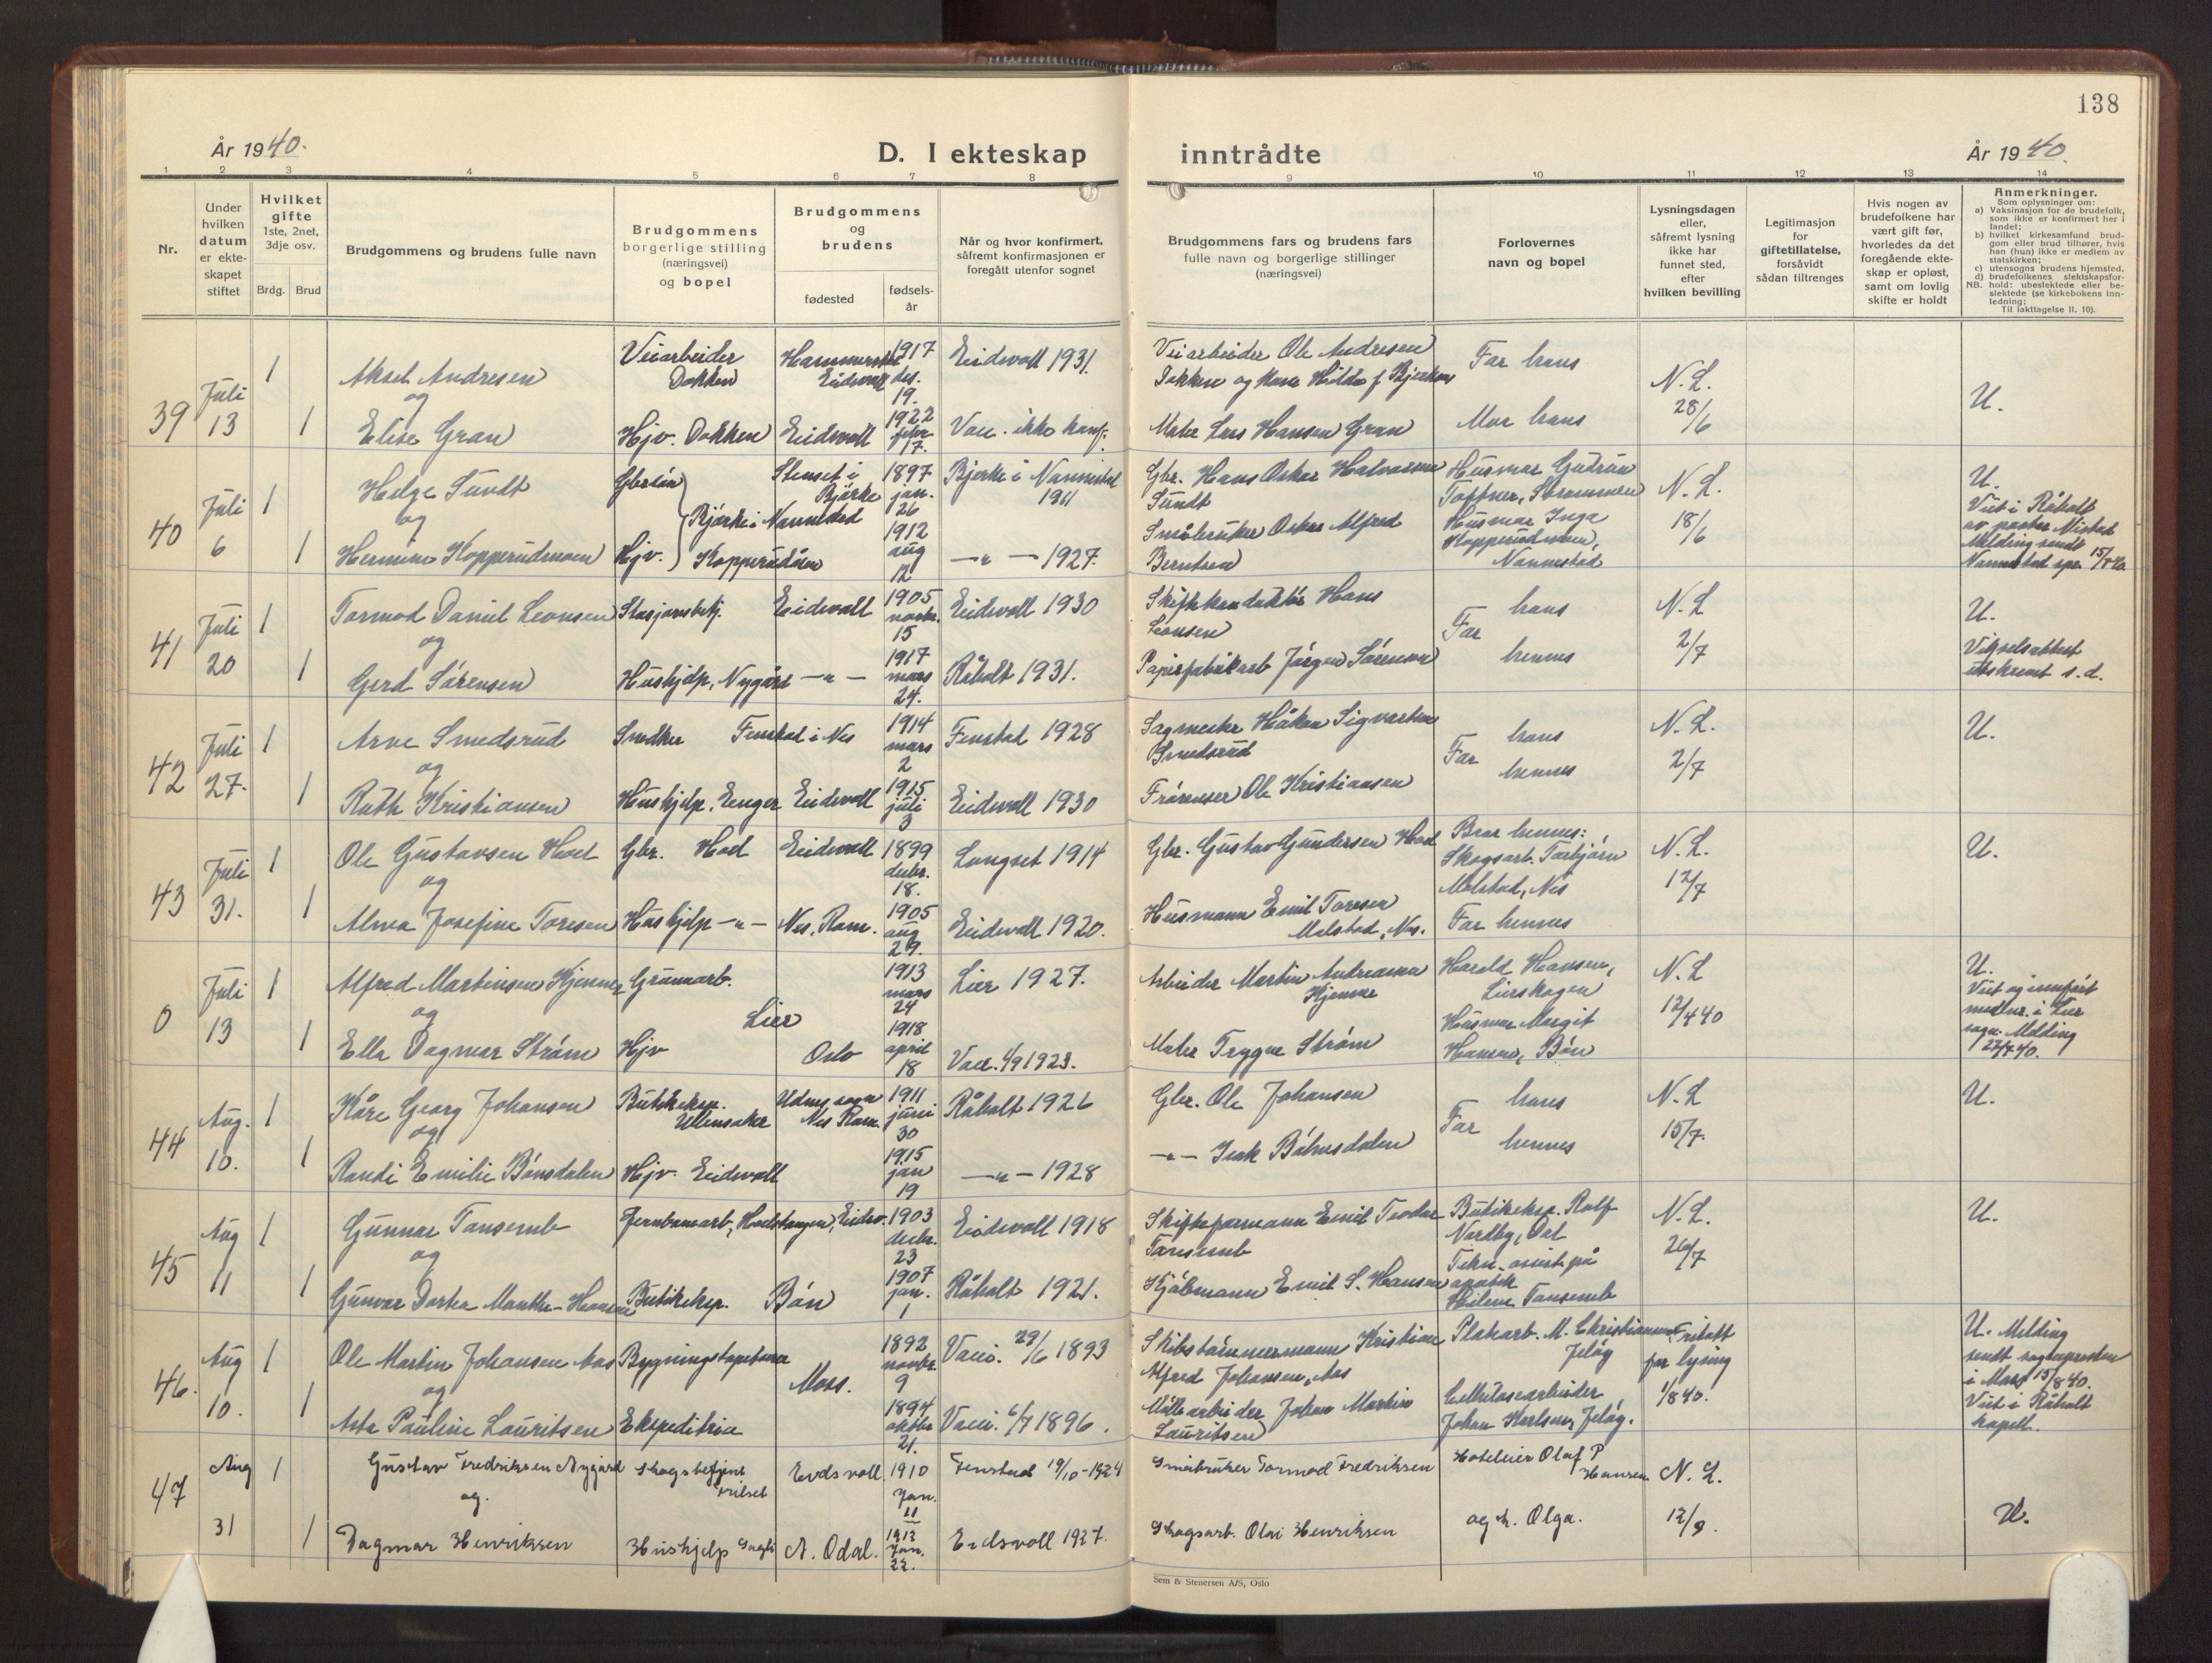 138
År 1940.
D. I ekteskap inntrådte
År 1940.
1 2 3 4 5 6 7 8 9 10 11 12 13 14
Nr.
Under hvilken datum er ekteskapet stiftet
Hvilket gifte 1ste, 2net, 3dje osv.
Brdg. Brud
Brudgommens og brudens fulle navn
Brudgommens og brudens borgerlige stilling (næringsvei) og bopel
Brudgommens og brudens
fødested
fødselsår
Når og hvor konfirmert, såfremt konfirmasjonen er foregått utenfor sognet
Brudgommens fars og brudens fars fulle navn og borgerlige stillinger (næringsvei)
Forlovernes navn og bopel
Lysningsdagen eller, såfremt lysning ikke har funnet sted, efter hvilken bevilling
Legitimasjon for giftetillatelse, forsåvidt sådan tiltrenges
Hvis nogen av brudefolkene har vært gift før, hvorledes da det foregående ekteskap er opløst, samt om lovlig skifte er holdt
Anmerkninger.
Som oplysninger om:
a) Vaksinasjon for de brudefolk, som ikke er konfirmert her i landet;
b) hvilket kirkesamfund brudgom eller brud tilhører, hvis han (hun) ikke er medlem av statskirken;
c) utensogns brudens hjemsted.
d) brudefolkenes slektskapsforhold: ubeslektede eller beslektede (se kirkebokens innledning;
NB.
Til iakttagelse II. 10).
39 Juli 13 1 Aksel Andresen Veiarbeider Dokken Eidsvoll 1917 des. 19. Eidsvoll 1931. Veiarbeider Ole Andresen Dokken og Far hans N.L. 28/6 U.
og
1 Elise Gran Hjv. Dokken Eidsvoll 1922 febr. 17. Vacc. ikke konf. Maler Lars Hansen Gran Mor hans
40 Juli 6 1 Helge Sundt Stenset i Bjerke 1897 jan. 26 Bjerke i Nannestad 1911 Gbr. Hans Oskar Halvorsen Sundt Husmor Gudrun N.L. 18/6 U. Viet i Råholt
og
1 Hermine Kopperudmoen Hjv. Bjerke i Nannestad 1912 aug 12 —"— 1927. Småbruker Oskar Alfred Berntsen Husmor Inga Kopperudmoen, Nannestad Melding sendt Nannestad
41 Juli 20 1 Tormod Daniel Leonsen Stasjonsbetj. Eidsvoll 1905 novbr. 15 Eidsvoll 1930 Skiftekonduktør Hans Leonsen Far hans N.L. 2/7 U.
og
1 Gerd Sørensen Hushjelp, Nygård —"— 1917 mars 24. Råholt 1931. Papirfabrikarb Jørgen Sørensen hennes Vigselsattest utskrevet s.d.
42 Juli 27. 1 Arve Smedsrud Snedker Fenstad i Nes 1914 mars 2 Fenstad 1928 Sagmester Håkon Sigvartsen Smedsrud Far hans N.L. 2/7 U.
og
1 Ruth Kristiansen Hushjelp. Enger Eidsvoll 1915 juli 3 Eidsvoll 1930 Frørenser Ole Kristiansen hennes
43 Juli 31. 1 Ole Gustavsen Hoel Gbr. Hoel Eidsvoll 1899 decbr. 18. Langset 1914 Gbr. Gustav Gundersen Hoel Bror hennes: Skogsarb. Torbjørn Melstad, Nes N.L. 12/7 U.
og
1 Alma Josefine Toresen Hushjelp —"— Nes. Rom. 1905 aug 29. Eidsvoll 1920. Husmann Emil Toresen Melstad, Nes. Far hennes
0 Juli 13 1 Alfred Martinsen Kjenner Grunnarb. Lier 1913 mars 24 Lier 1927. Arbeider Martin Andreassen Kjenner Harald Hansen, Lierskogen N.L. 12/4 40 U. Viet og innført i Lier sogn. Melding 27/7 40.
og
1 Ella Dagmar Strøm Hjv Oslo 1918 april 18 Vacc. 4/9 1923. Maler Trygve Strøm Husmor Margit Hansen, Bøn
44 Aug. 10. 1 Kåre Georg Johansen Butikeksp. Ullensaker Udnes sogn Nes Rom. 1911 juni 30 Råholt 1926 Gbr. Ole Johansen Far hans N.L. 15/7. U.
og
1 Randi Emilie Bönsdalen Hjv. Eidsvoll 1915 jan 19 —"— 1928 —"— Isak Böhnsdalen hennes
45 Aug 11 1 Gunnar Tansemb Jernbanearb, Eidsv. 1903 decbr. 23 Eidsvoll 1918 Skifteformann Emil Teodor Tansemb Butikeksp. Rolf Nordby, Dal N.L. 26/7 U.
og
1 Gunvor Dortea Butikeksp. Bön 1907 jan. 1 Råholt 1921. Kjøbmann Emil S. Hansen Tekn. assist på apotek Tansemb
46. Aug 10. 1 Ole Martin Johansen Aas Bygningstapetserer Moss. 1892 novbr. 9 Vacc. 29/6 1893 Skibstømmermann Kristian Alfred Johansen, Aas Platearb. M. Christiansen Jeløy Fritatt for lysing 1/8 40. U. Melding sendt sognepresten i Moss 15/8 40.
og
1 Asta Pauline Lauritsen Ekspeditrice 1894 oktbr 21. Vacci. 6/7 1896. Møllearbeider Johan Martin Lauritsen Cellulosearbeider Johan Karlsen, Jeløy. Viet i Råholt kapell.
47 Aug 31 1 Gustav Fredriksen Nygård Skogsbetjent Eidsvoll 1910 Jan. 11 Fenstad 19/10-1924 Småbruker Tormod Fredriksen Hotelleier Olaf P Hansen N.L. 12/8. U.
og.
1 Dagmar Henriksen Hushjelp N. Odal. 1912 Jan. 22. Eidsvoll 1927. Skogsarb. Olai Henriksen og h. Olga.
Sem & Stenersen A/S, Oslo